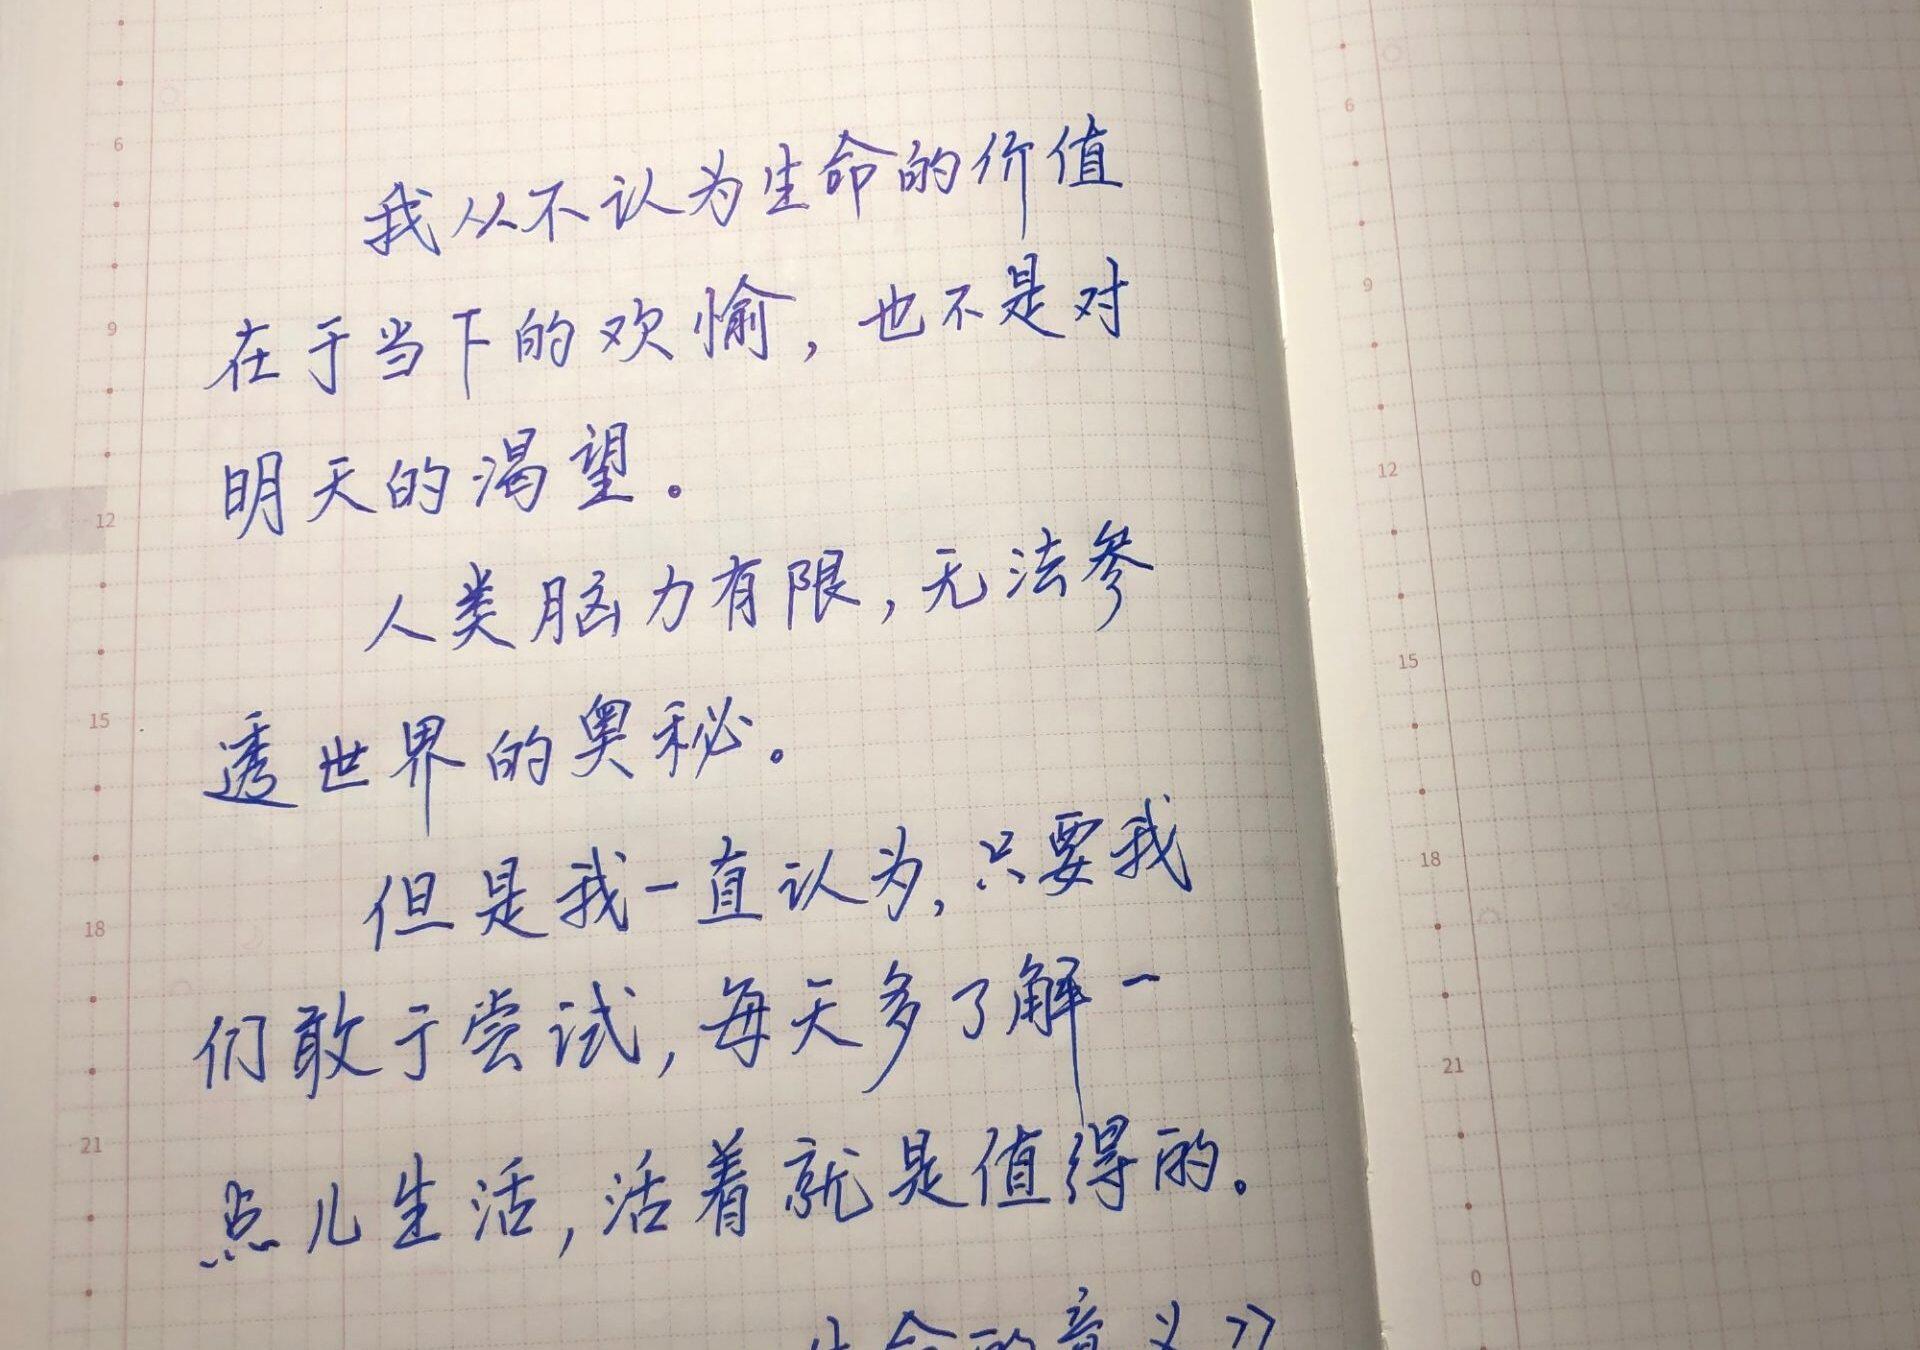 我从不认为生命的价值
在于当下的欢愉，也不是对
明天的渴望。
人类脑力有限，无法参
透世界的奥秘。
但是我一直认为，只要我
们敢于尝试，每天多了解一
点儿生活，活着就是值得的。
生命的意义》
6
9
12
15
18
21
6
9
12
15
18
21
0